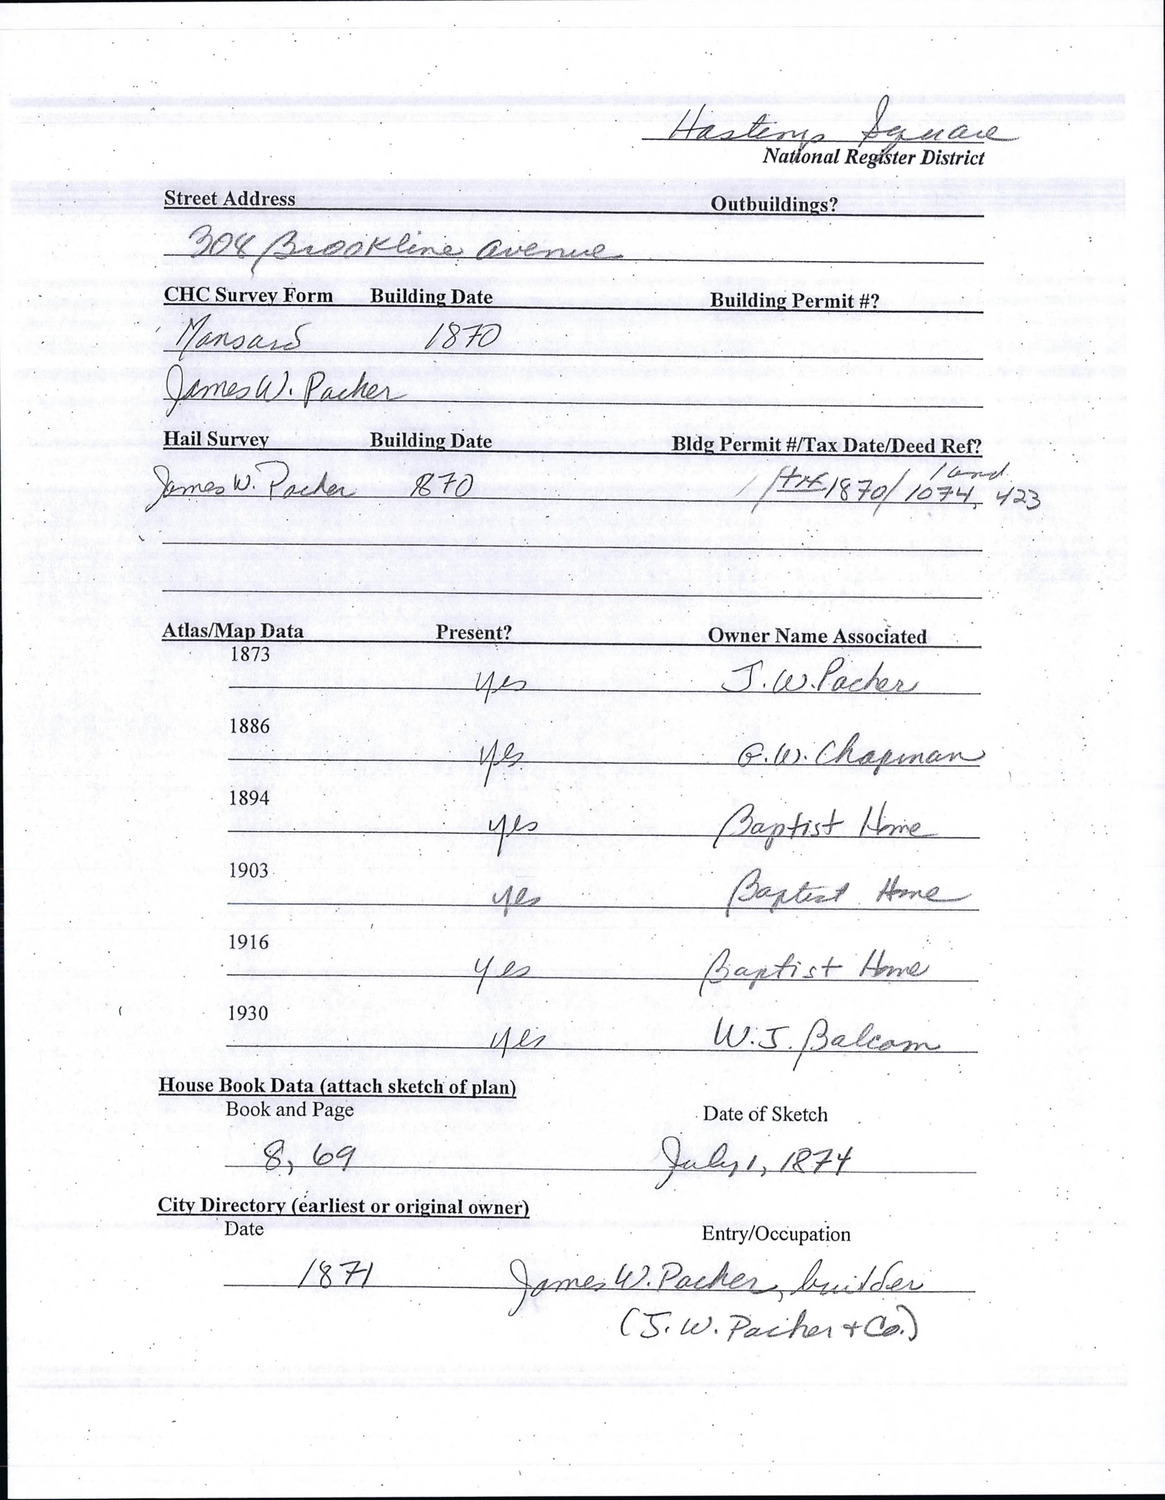 Hastings Square
National Register District
Street Address Outbuildings?
308 Brookline Avenue
CHC Survey Form Building Date Building Permit #?
Mansard 1870
James W. Pacher
Hail Survey Building Date Bldg Permit #/Tax Date/Deed Ref?
James W. Pacher 1870 / 1870/ 1074, 423
land
Atlas/Map Data Present? Owner Name Associated
1873
yes J. W. Pacher
1886
yes G. W. Chapman
1894
yes Baptist Home
1903
yes Baptist Home
1916
yes Baptist Home
1930
yes W. J. Balcom
House Book Data (attach sketch of plan)
Book and Page Date of Sketch
8, 69 July 1, 1874
City Directory (earliest or original owner)
Date Entry/Occupation
1871 James W. Pacher, builder
(J. W. Pacher + Co.)